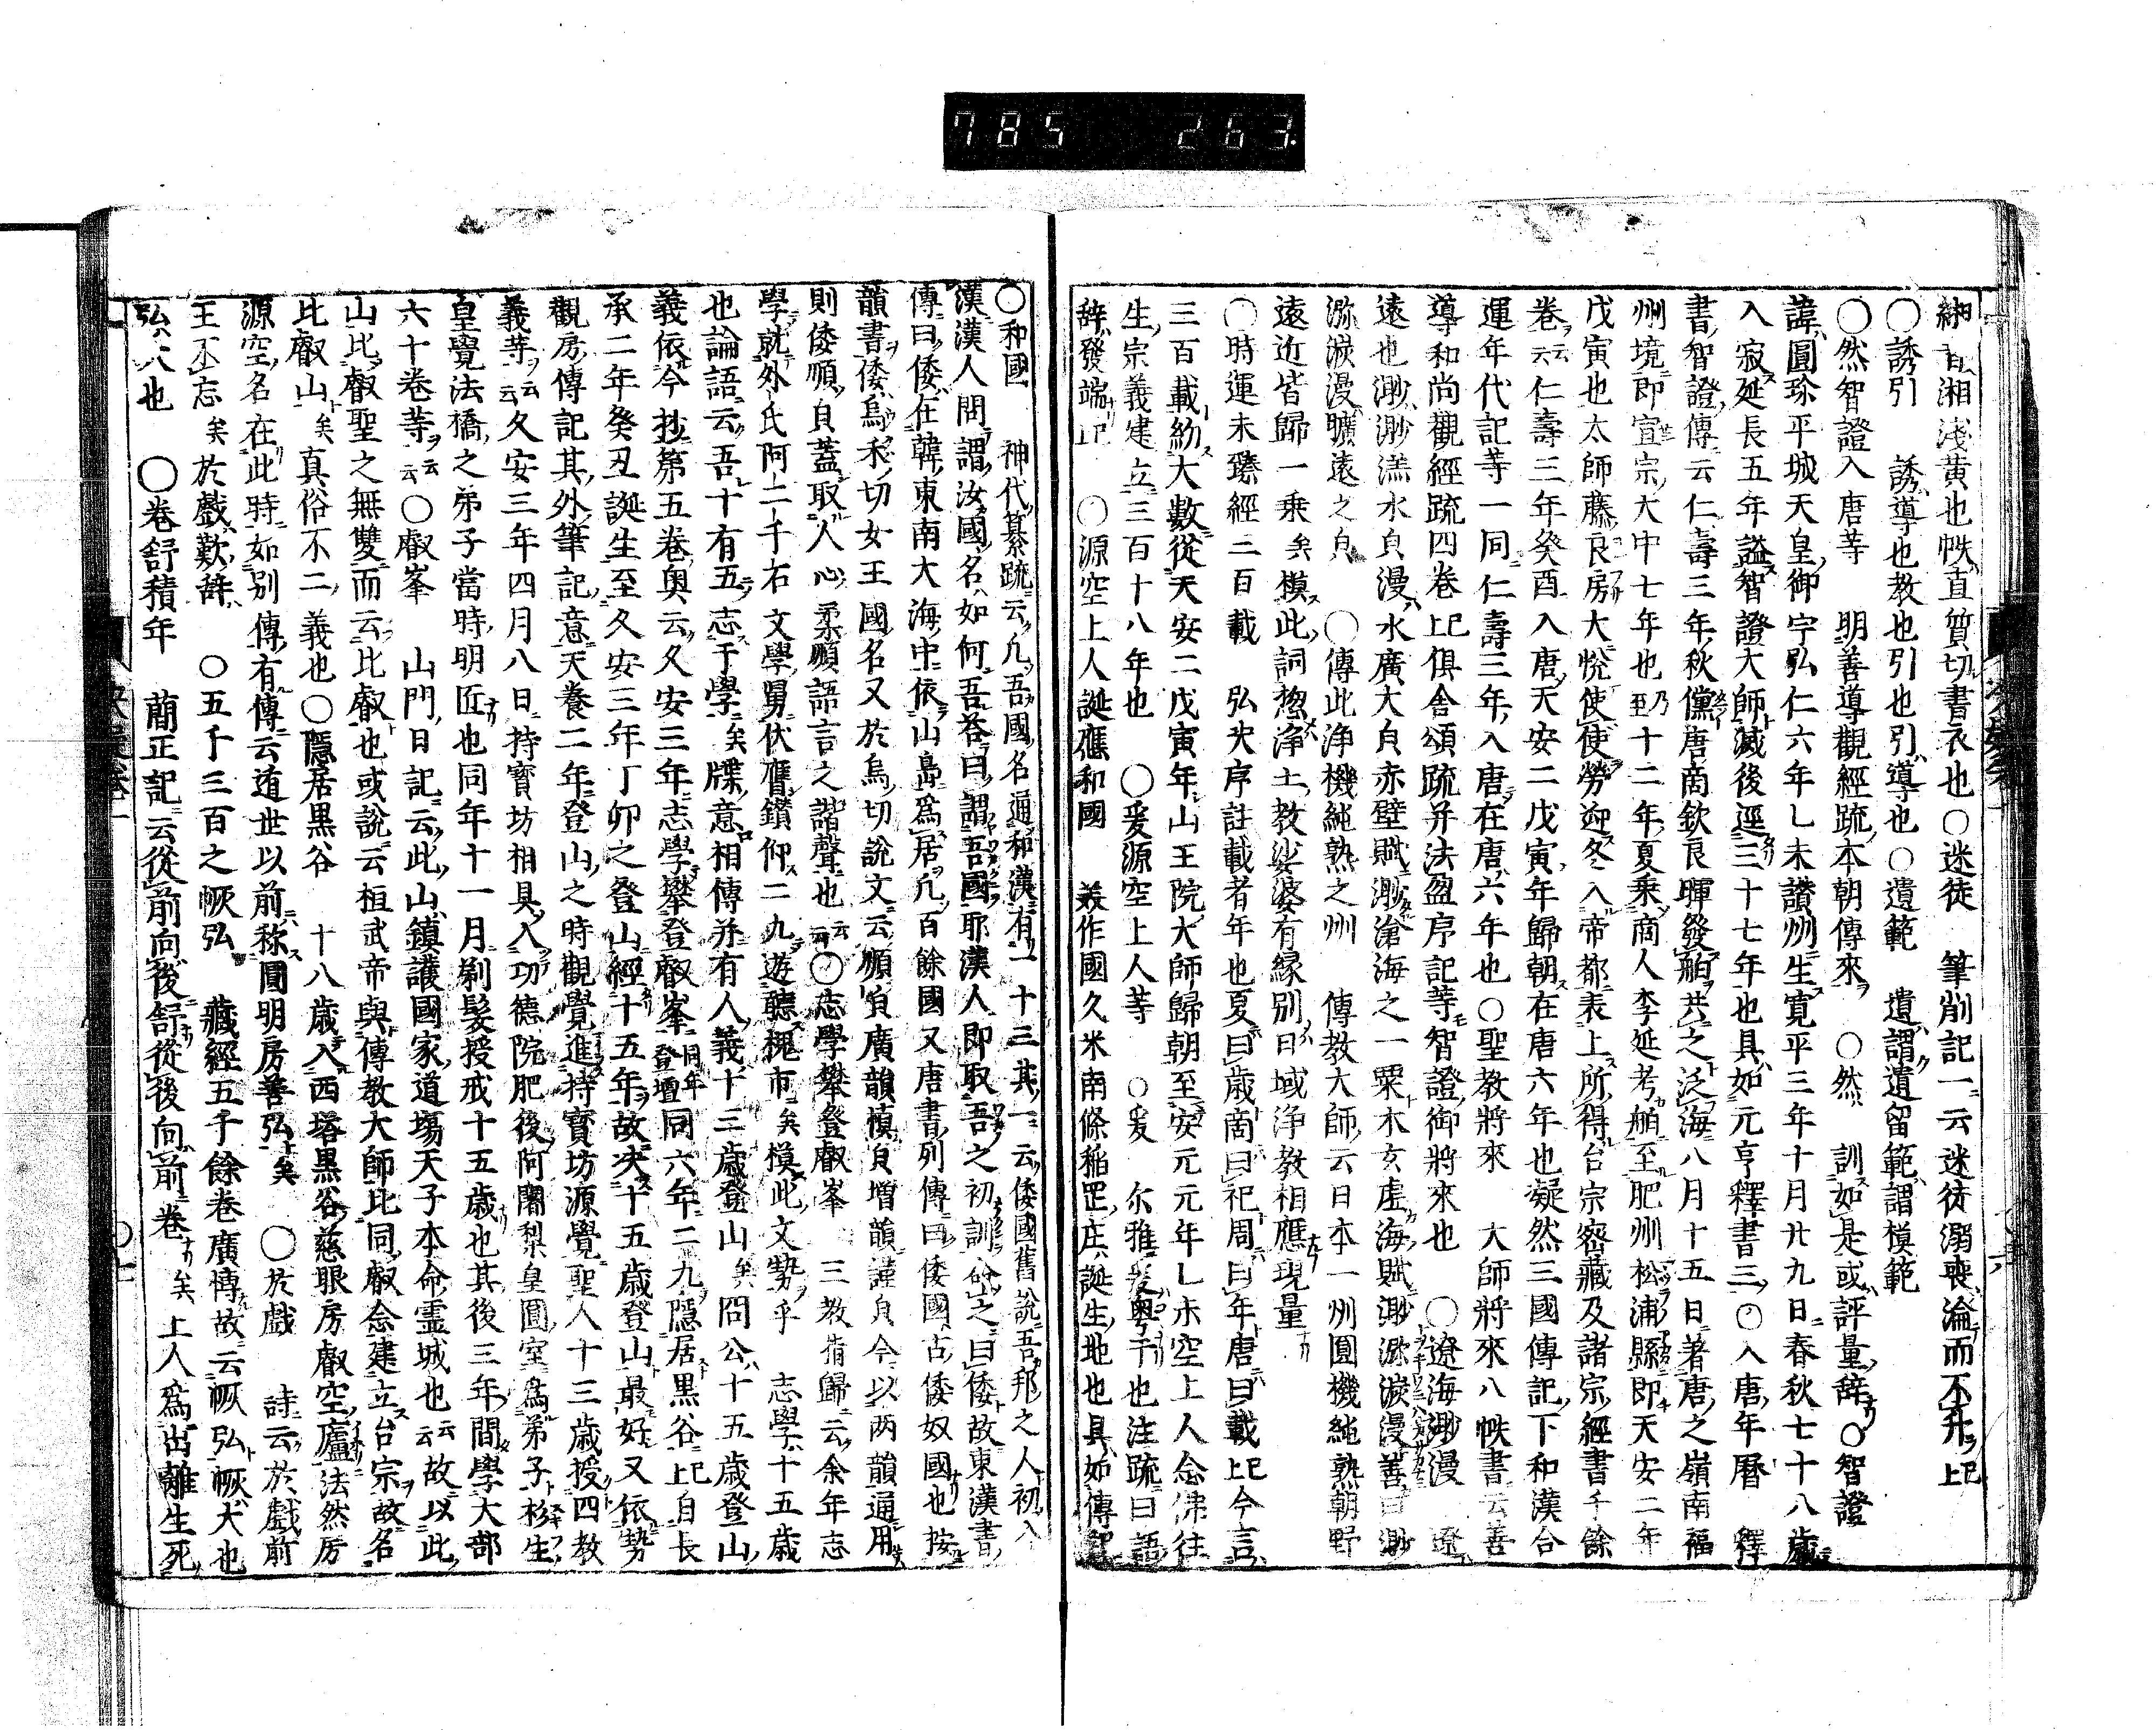 785 263.
緗 音湘淺黄也帙直質切書衣也○迷徒 筆削記一云迷徒溺喪淪而不升 已上
○誘引 誘導也教也引也引導也○遺範 遺謂遺留範謂模範
○然智證入唐等 明善導觀經疏本朝傳來 ○然 訓如是或評量辞○智證
諱圓珍平城天皇御宇弘仁六年乚未讃州生寛平三年十月廿九日春秋七十八歳
入寂延長五年諡智證大師滅後逕三十七年也具如元亨釋書三○入唐年暦 釋
書智證傳云仁壽三年秋儻唐商欽良暉發舶共之泛海八月十五日著唐之嶺南福
州境即宣宗大中七年也乃至十二年夏乗商人李延考舶至肥州松浦縣即天安二年
戊寅也太師藤良房大悦使使勞迎冬入帝都表上所得台宗密藏及諸宗經書千餘
卷云云仁壽三年癸酉入唐天安二戊寅年歸朝在唐六年也凝然三國傳記下和漢合
運年代記等一同仁壽三年入唐在唐六年也○聖教將來 大師將來八帙書云善
導和尚觀經疏四卷已上俱舍頌疏并法盈序記等智證御將來也 ○遼海渺漫 遼
遠也渺渺渁水皃漫水廣大皃赤壁賦渺滄海之一粟木玄虚海賦渺㳽湠漫善曰渺
㳽湠漫曠遠之皃 ○傳此浄機純熟之州 傳教大師云日本一州圓機純熟朝野
遠近皆歸一乗矣模此詞惣浄土教娑婆有縁別日域浄教相應現量
○時運未臻經二百載 弘决序註載者年也夏曰歳商曰祀周曰年唐曰載已上今言
三百載約大數從天安二戊寅年山王院大師歸朝至安元元年乚未空上人念佛往
生宗義建立三百十八年也 ○爰源空上人等 ○爰 尓雅爰粤于也注疏曰語
辞發端已上 ○源空上人誕應和國 美作國久米南條稲罡庄誕生地也具如傳記
○和國 神代纂疏云凡吾國名通和漢有一十三其一云倭國舊説吾邦之人初入
漢漢人問謂汝國名如何吾答曰謂吾國耶漢人即取吾之初訓命之曰倭故東漢書
傳曰倭在韓東南大海中依山島爲居凡百餘國又唐書列傳曰倭國古倭奴國也按
韻書倭烏禾切女王國名又於烏切説文云順皃廣韻愼皃増韻謹皃今以两韻通用
則倭順皃蓋取人心柔順語言之諧聲也云云○志學攀登叡峯 三教指歸云余年志
學就外氏阿二千石文學舅伏膺鑽仰二九遊聽槐市矣模此文勢乎 志學十五歳
也論語云吾十有五志于學矣牒意相傳并有人義十三歳登山矣冏公十五歳登山
義依今抄第五卷奥云久安三年志學攀登叡峯同年登壇同六年二九隱居黒谷已上自長
承二年癸丑誕生至久安三年丁卯之登山經十五年故决十五歳登山最好又依勢
觀房傳記其外筆記意天養二年登山之時觀覺進持寳坊源覺聖人十三歳授四教
義等云云久安三年四月八日持寳坊相具入功德院肥後阿闍梨皇圓室爲弟子杉生
皇覺法橋之弟子當時明匠也同年十一月剃髪授戒十五歳也其後三年間學大部
六十卷等云云○叡峯 山門日記云此山鎮護國家道塲天子本命霊城也云云故以此
山比叡聖之無雙而云比叡也或説云桓武帝與傳教大師比同叡念建立台宗故名
比叡山矣真俗不二義也○隱居黒谷 十八歳入西塔黒谷慈眼房叡空廬法然房
源空名在此時如别傳有傳云遁世以前称圓明房善弘矣 ○於戲 詩云於戲前
王不忘矣於戲歎辞 ○五千三百之帙弘 藏經五千餘卷廣博故云帙弘帙大也
弘八也 ○卷舒積年 蕳正記云從前向後舒從後向前卷矣上人爲出離生死